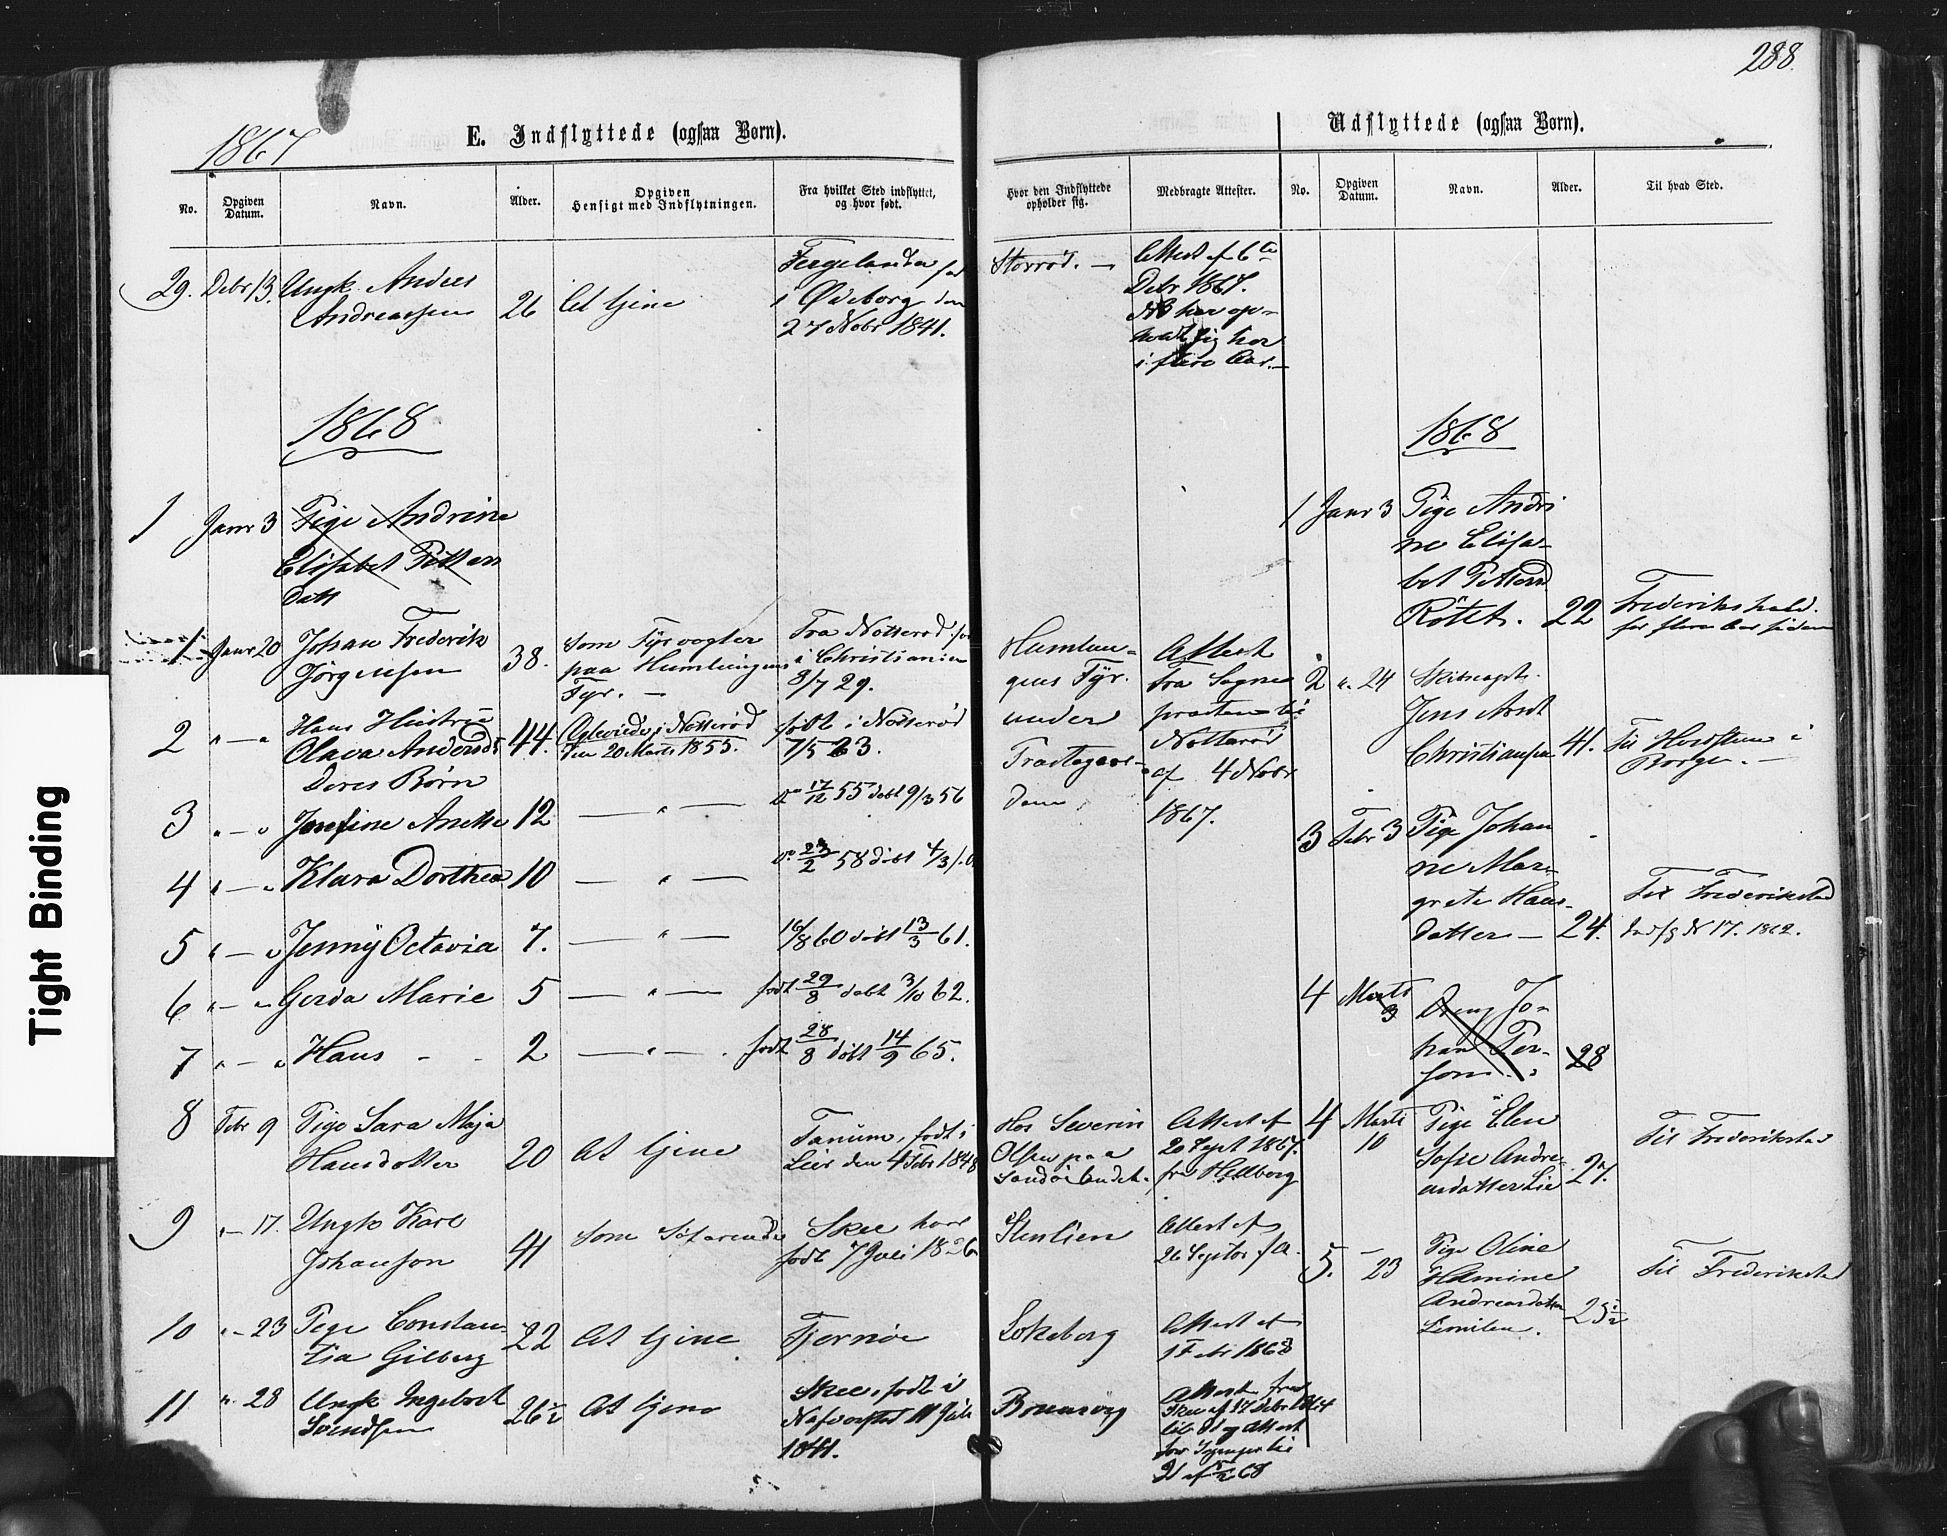 288.
1867
E. Indflyttede (ogsaa Børn).
No.
Opgiven Datum.
Navn.
Alder.
Opgiven Hensigt med Indflytningen.
Fra hvilket Sted indflyttet, og hvor født.
Hvor den Indflyttede opholder sig.
Medbragte Attester.
29. Debr 13. Ungk. Andres
Andreassen 26 At tjene
i Ødeborg den
27 Nobr 1841.
Storrød. —
Attest af 6te
Debr 1867.
NB har op-
holdt sig her
i flere Aar. —
1868
1 Janr 3 Pige Andrine
Elisabet Petters
Datt
1 Janr 20 Johan Frederik
Jørgensen 38.
Som Fyrvogter
paa Humlungens
Fyr. —
Fra Notterød
i Christiania
8/7 29.
Humlun-
gens Fyr.
under
Attest
fra Sogne
præsten til
Notterød
af 4 Nobr
1867.
2 " — " Hans Hustrue
Olava Andersdt 44.
Deres Børn
i Notterød
den 20 Marts 1855.
født i Notterød
7/5 23.
3 " — " Josefine Anette 12 — " —
do 17/12 55 døbt 9/3 56
4 " — " Klara Dorthea 10 — " —
do 23/2 58 døbt 4/3
5 " — " Jenny Octavia 7. — " —
16/8 60 døbt 13/3 61.
6 " — " Gerda Marie 5 — " —
født 29/8 døbt 3/10 62.
7 " — " Hans - - 2 — " —
født 28/8 døbt 14/9 65.
8 Febr 9 Pige Sara Maja
Hansdotter 20 At tjene
Tanum, født i
Leir den 4 Febr 1848
Hos Severin
Olsen paa
Attest af
20 Sept 1867.
fra
9 " — 17. Ungk Karl
Johanson 41
Som
Skee
født 7 Juli 1826
Stenlien
Attest af
26 Septbr f A.
10 " — 23 Pige Constan-
tia Gilberg 22 At tjene
Tjernøe
Lokeberg
Attest af
1868
11 " 28 Ungk Ingebort
Svendsen 26½ At tjene
Skee, født i
11 Juli
1841.
Attest fra
Skee af 17 Debr 1864
Attest
68
Udflyttede (ogsaa Børn).
No.
Opgiven Datum.
Navn.
Alder.
Til hvad Sted.
1868
1 Janr 3 Pige Andri
ne Elisa-
bet Petters
Rötet. 22
Frederikshald.
for flere Aar siden
2 " 24
Jens Arnt
Christiansen 41.
Til
i
Borge. —
3 Febr 3 Pige Johan
ne Mar-
grete Hans-
datter — 24.
Til Frederikstad
N 17. 1862.
4 Marts
3
Dreng Jo-
han Per-
son. 28
4 Marts
10
Pige Elen
Sofie Andre-
asdatter Lie 27.
Til Frederikstad
5. — 23
Pige Oline
Hermine
Andreasdatter
25½
Til Frederikstad
Tight Binding